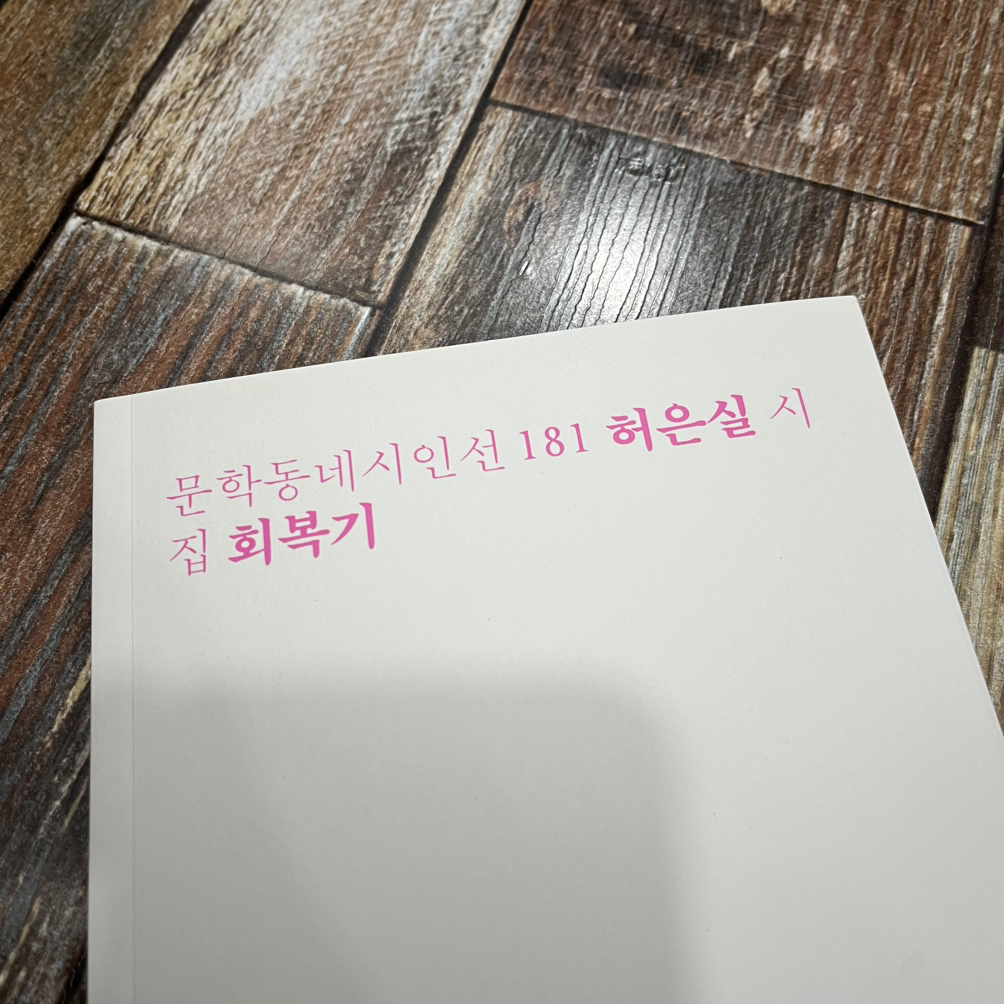 문학동네시인선 181 허은실 시
집 회복기